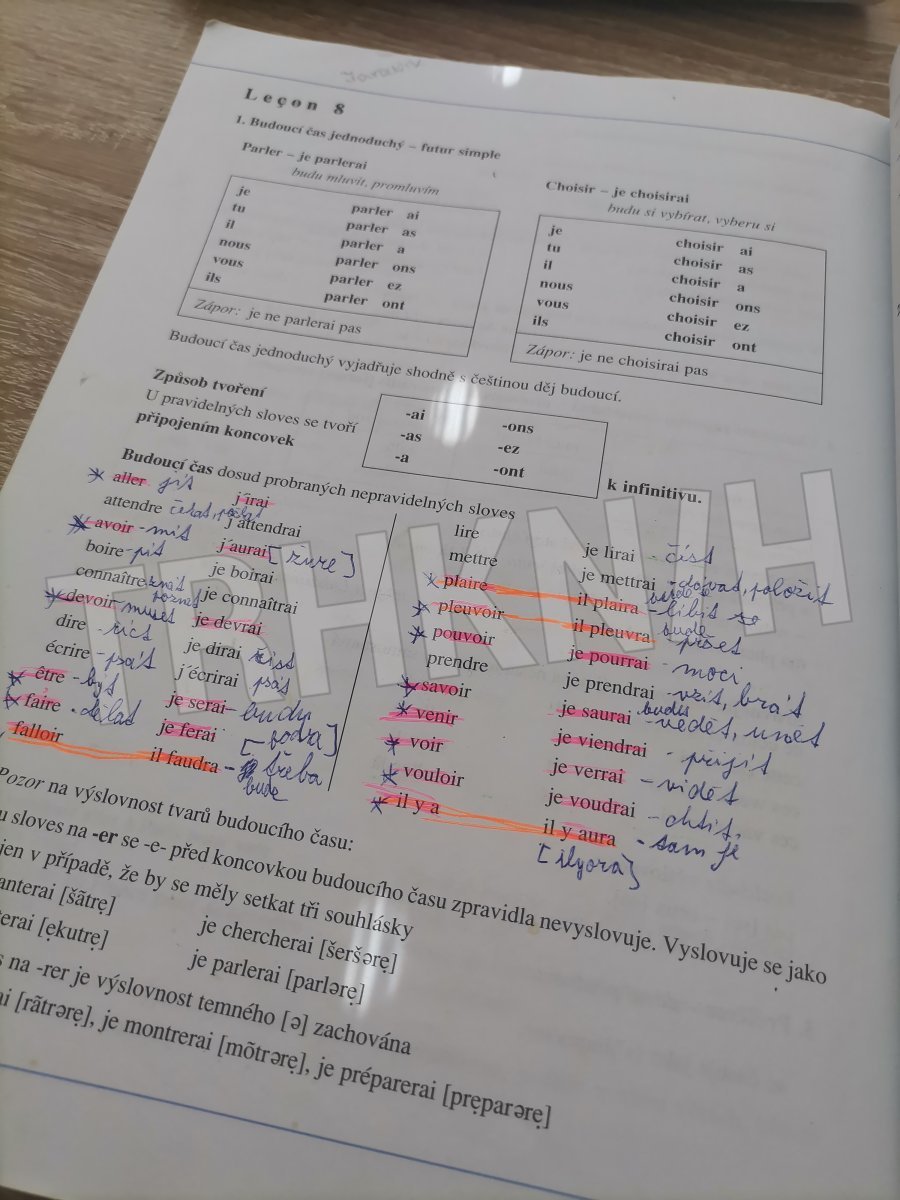 Leçon 8
1. Budoucí čas jednoduchý – futur simple
Parler – je parlerai
budu mluvit, promluvím
je parler ai
tu parler as
il parler a
nous parler ons
vous parler ez
ils parler ont
Zápor: je ne parlerai pas
Choisir – je choisirai
budu si vybírat, vyberu si
je choisir ai
tu choisir as
il choisir a
nous choisir ons
vous choisir ez
ils choisir ont
Zápor: je ne choisirai pas
Budoucí čas jednoduchý vyjadřuje shodně s češtinou děj budoucí.
Způsob tvoření
U pravidelných sloves se tvoří
připojením koncovek
-ai -ons
-as -ez
-a -ont
k infinitivu.
Budoucí čas dosud probraných nepravidelných sloves
aller jít j´irai
attendre čekat, j´attendrai
avoir - mít j´aurai [žure]
boire - pít je boirai
connaître znát poznat je connaîtrai
devoir - muset je devrai
dire - říct je dirai říct
écrire - psát j´écrirai psát
être - být je serai - budu
faire - dělat je ferai
falloir il faudra - třeba bude
lire je lirai - číst
mettre je mettrai - dávat, položit
plaire il plaira - líbit se
pleuvoir il pleuvra bude pršet
pouvoir je pourrai - moci
prendre je prendrai - vzít, brát
savoir je saurai - vědět, umět
venir je viendrai - přijít
voir je verrai - vidět
vouloir je voudrai - chtít,
il y a il y aura - tam je
[ilyora]
Pozor na výslovnost tvarů budoucího času:
u sloves na -er se -e- před koncovkou budoucího času zpravidla nevyslovuje. Vyslovuje se jako
jen v případě, že by se měly setkat tři souhlásky
anterai [šãtrẹ] je chercherai [šeršərẹ]
erai [ẹkutrẹ] je parlerai [parlərẹ]
s na -rer je výslovnost temného [ə] zachována
ai [rãtrərẹ], je montrerai [mõtrərẹ], je préparerai [prẹparərẹ]
TRHKNIH